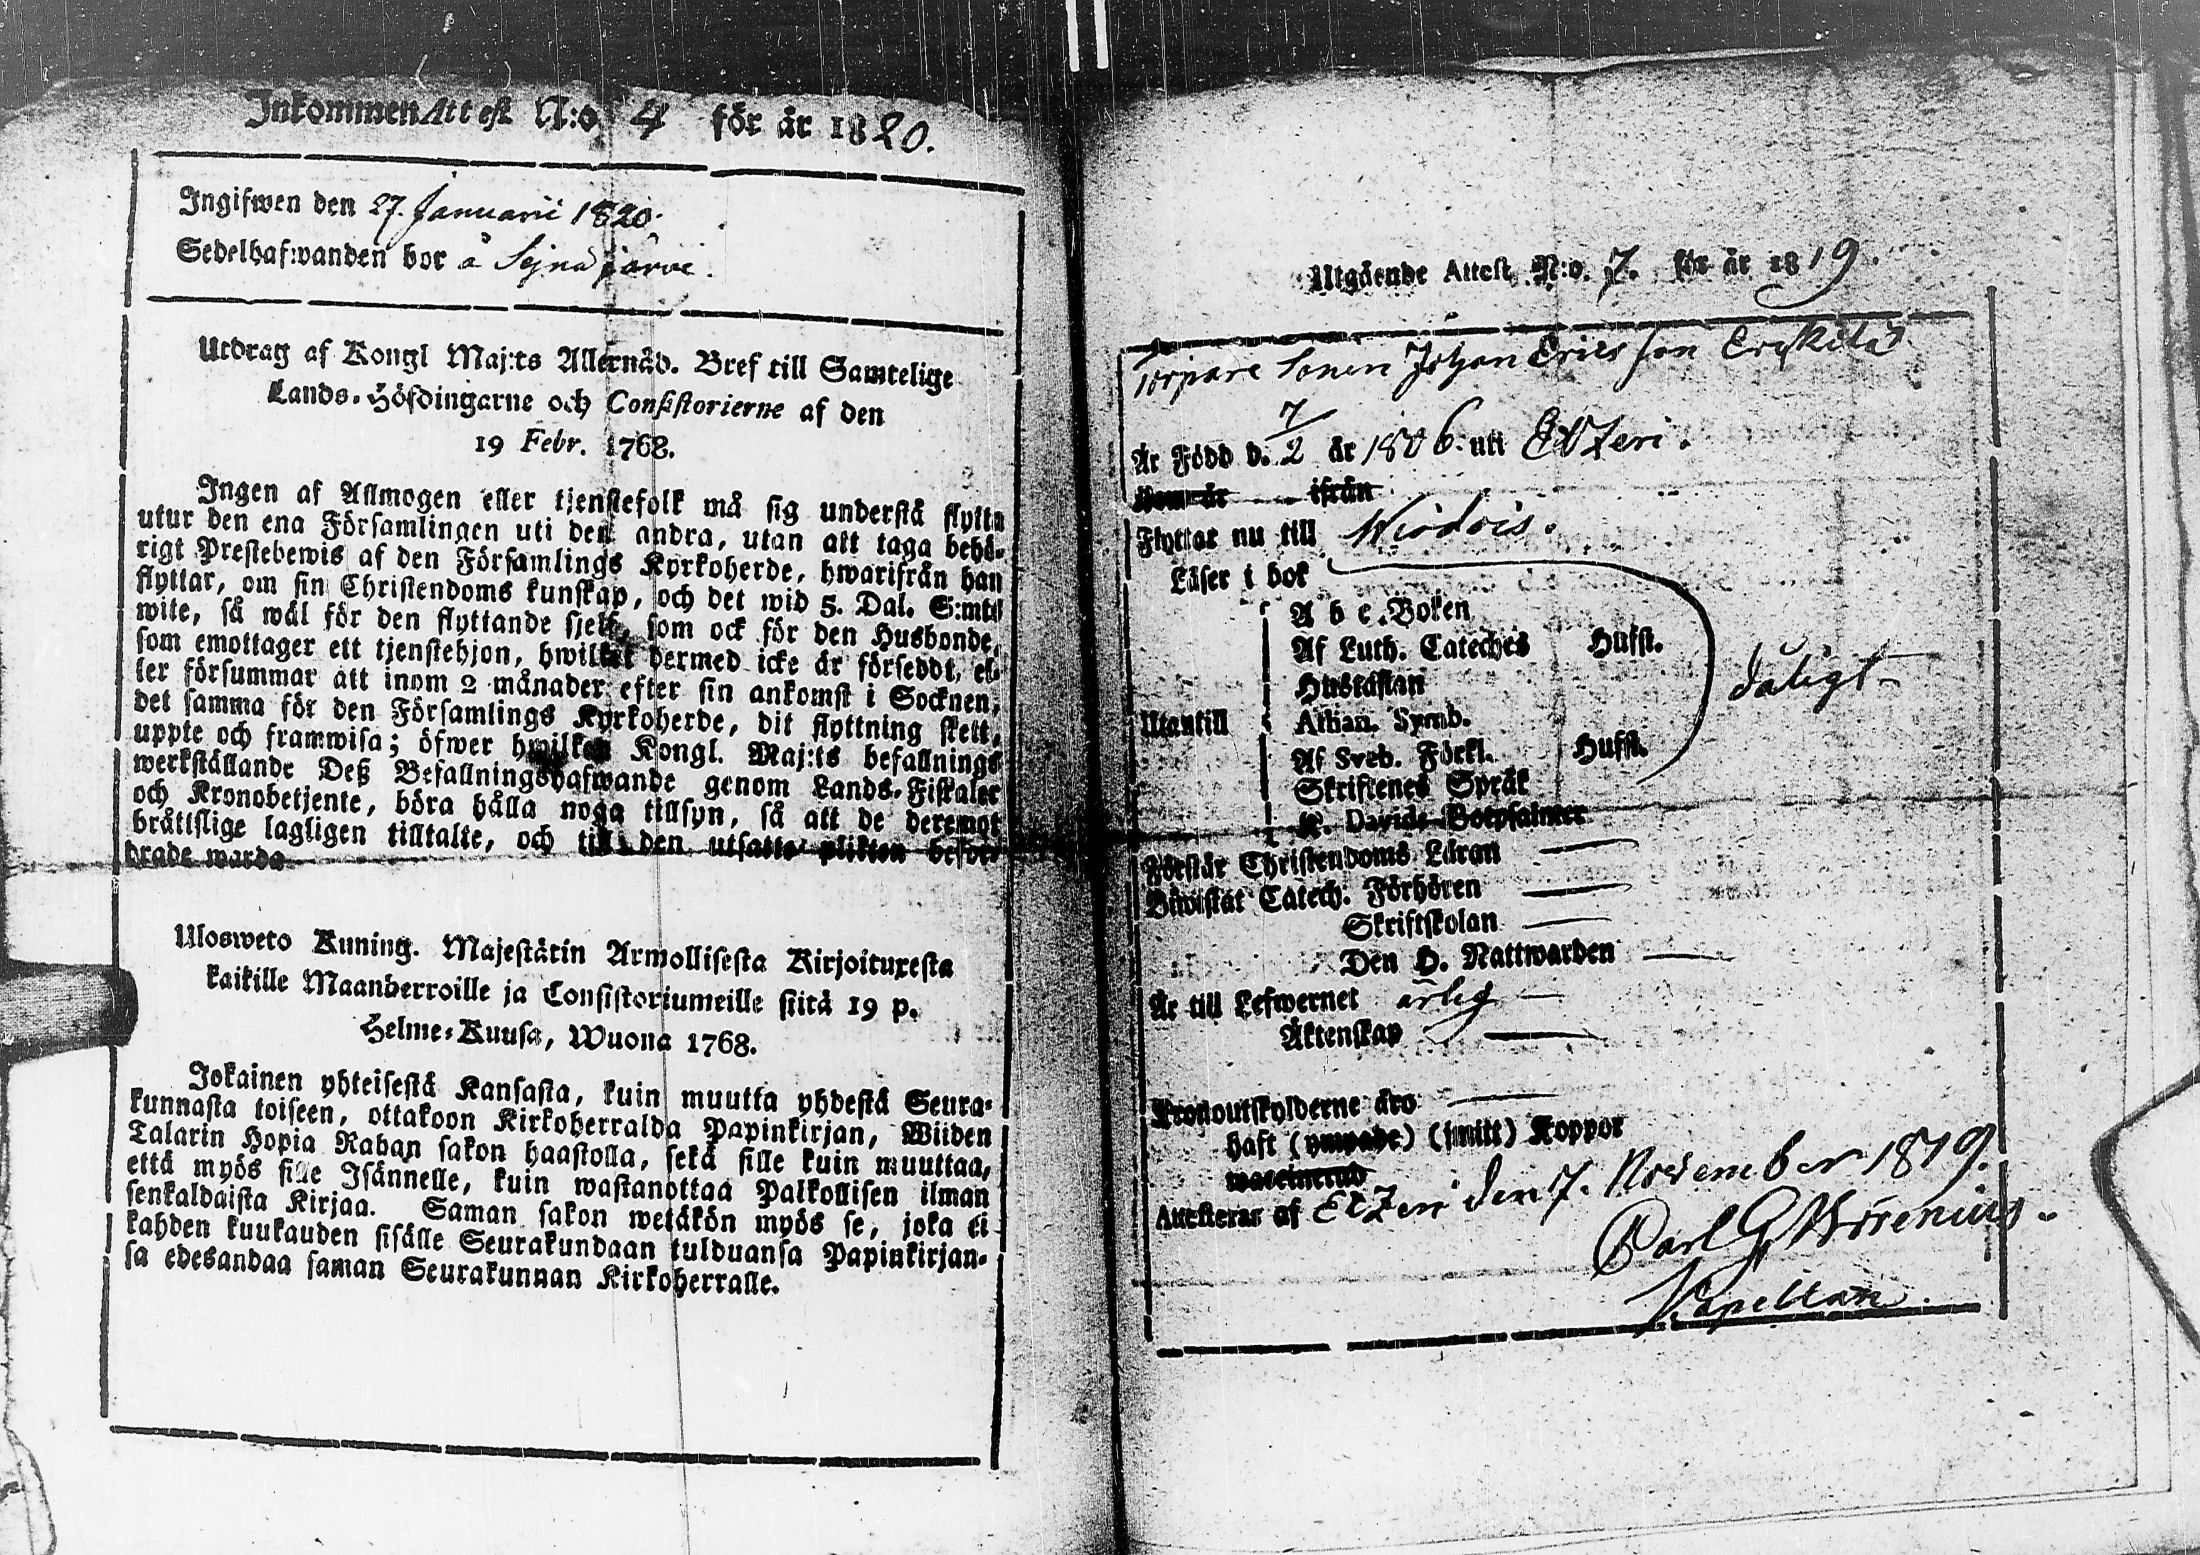 Inkommen Attest N:o 4 för år 1820.
Ingifwen den 27. Januarii 1820.
Sedelhafwanden bor å Sejnäjärvi.
Utdrag af Kongl Maj:ts Allernåd. Bref till Samtelige
Lands-Höfdingarne och Consistorierne af den
19 Febr. 1768.
Ingen af Allmogen eller tjenstefolk må sig understå flytta
utur den ena Församlingen uti den andra, utan att taga behö-
rigt Prestebewis af den Församlings Kyrkoherde, hwarifrån han
flyttar, om sin Christendoms kunskap, och det wid 5. Dal. S:mts
wite, så wäl för den flyttande sjelf, som ock för den Husbonde,
som emottager ett tjenstehjon, hwilket dermed icke är försedt, el-
ler försummar att inom 2 månader efter sin ankomst i Socknen,
det samma för den Församlings Kyrkoherde, dit flyttning skett,
uppte och framwisa; öfwer hwilken Kongl. Maj:ts befallnings
werkställande Deß Befallningshafwande genom Lands-Fiskaler
och Kronobetjente, böra hålla noga tillsyn, så att de deremot
bråttslige lagligen tilltalte, och till den utsatte plikten beford-
drade warda
Ulosweto Kuning. Majestätin Armollisesta Kirjoituxesta
kaikille Maanherroille ja Consistoriumeille siitä 19 p.
Helme-Kuusa, Wuona 1768.
Jokainen yhteisestä Kansasta, kuin muutta yhdestä Seura-
kunnasta toiseen, ottakoon Kirkoherralda Papinkirjan, Wiiden
Talarin Hopia Rahan sakon haastolla, sekä sille kuin muuttaa,
että myös sille Isännelle, kuin wastanottaa Palkollisen ilman
senkaldaista Kirjaa. Saman sakon wetäkön myös se, joka ei
kahden kuukauden sisälle Seurakundaan tulduansa Papinkirjan-
sa edesandaa saman Seurakunnan Kirkoherralle.
Utgående Attest N:o. 7. för år 1819.
Torpare Sonen Johan Ericsson
Är Född d. 7/2 år 1806 uti Etzeri.
Kom år ifrån
Flyttar nu till Wirdois.
Läser i bok
A b c Boken
Af Luth. Cateches Husst.
Hustaflan
Utantill Athan. Symb. dåligt
Af Sveb. Förkl. Husst.
Skriftenes Språk
K. Davids Botpsalmer
Förstår Christendoms Läran
Biwistat Catech. Förhören
Skriftskolan
Den H. Nattwarden
Är till Lefwernet ärlig
Äktenskap
Kronoutskylderne äro
Haft (ympade) (smitt) Koppor
waccinerad
Attesteras af Etzeri den 7. November 1819.
Carl G.
Kapellan.